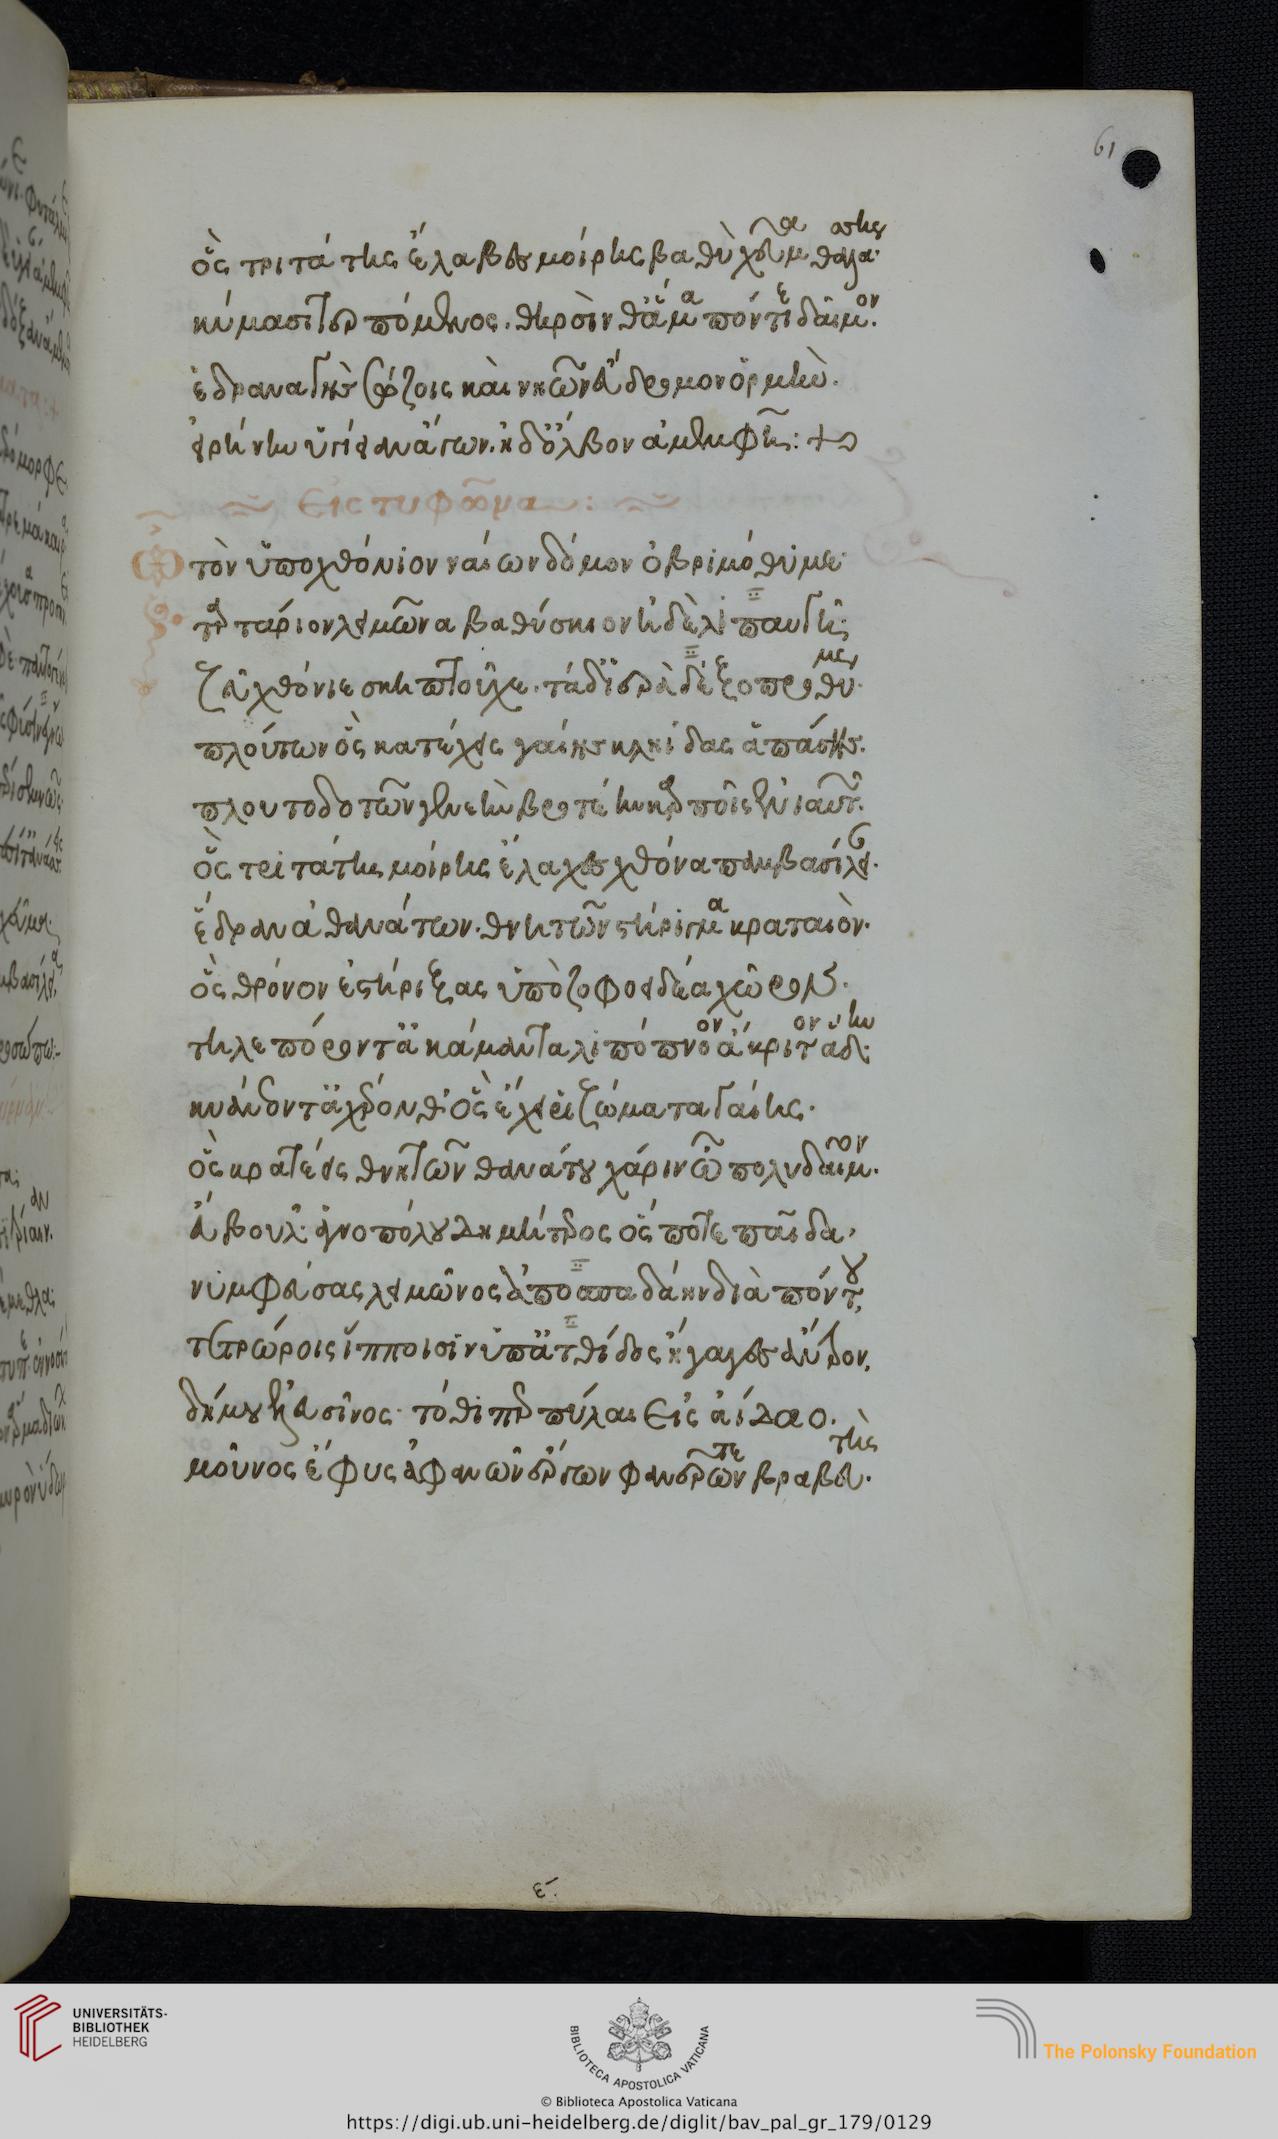 61
ὃς τριτάτης ἔλαβες μοίρης βαθὺ χεῦμα θαλάσσης·
κύμασι τερπόμενος· θηρσὶν θ' ἅμα πόντιε δαῖμον.
ἕδρανα γῆς σώζοις καὶ νηῶν εὔδρομον ὁρμὴν.
εἰρήνην ὑγίειαν ἄγων. ἠδ' ὄλβον ἀμεμφῆ:
Εἰς τυφῶνα:
Ὦ τὸν ὑποχθόνιον ναίων δόμον ὀβριμόθυμε·
ταρτάριον λειμῶνα βαθύσκιον ἠδὲ λιπαυγῆ·
ζεῦ χθόνιε σκηπτοῦχε. τάδ' ἱερὰ δέξο προθύμως
πλούτων ὃς κατέχεις γαίης κληῖδας ἁπάσης.
πλουτοδοτῶν γενεὴν βροτέην καρποῖς ἐνιαυτῶν.
ὃς τριτάτης μοίρης ἔλαχες χθόνα παμβασίλειαν.
ἕδραν ἀθανάτων. θνητῶν στήριγμα κραταιὸν.
ὃς θρόνον ἐστήριξας ὑπὸ ζοφοειδέα χῶρον.
τηλέπορόν τ' ἀκάμαντα λιπόπνοον ἄκριτον ἄδην
κυάνεόν τ' ἀχέρονθ' ὃς ἔχει ῥιζώματα γαίης.
ὃς κρατέεις θνητῶν θανάτου χάριν ὦ πολυδαῖμον.
εὔβουλ' ἁγνοπόλου δημήτερος ὅς ποτε παῖδα.
νυμφεύσας λειμῶνος ἀποσπαδάην διὰ πόντου,
τετρώροις ἵπποισιν ὑπ' ἀτθίδος ἤγαγες ἄντρον,
δήμου ἐλευσῖνος· τόθι περ πύλαι εἰς ἀίδαο.
μοῦνος ἔφυς ἀφανῶν ἔργων φανερῶν τε βραβευτὴς.
ε-
UNIVERSITÄTS-
BIBLIOTHEK
HEIDELBERG
BIBLIOTECA APOSTOLICA VATICANA
The Polonsky Foundation
© Biblioteca Apostolica Vaticana
https://digi.ub.uni-heidelberg.de/diglit/bav_pal_gr_179/0129